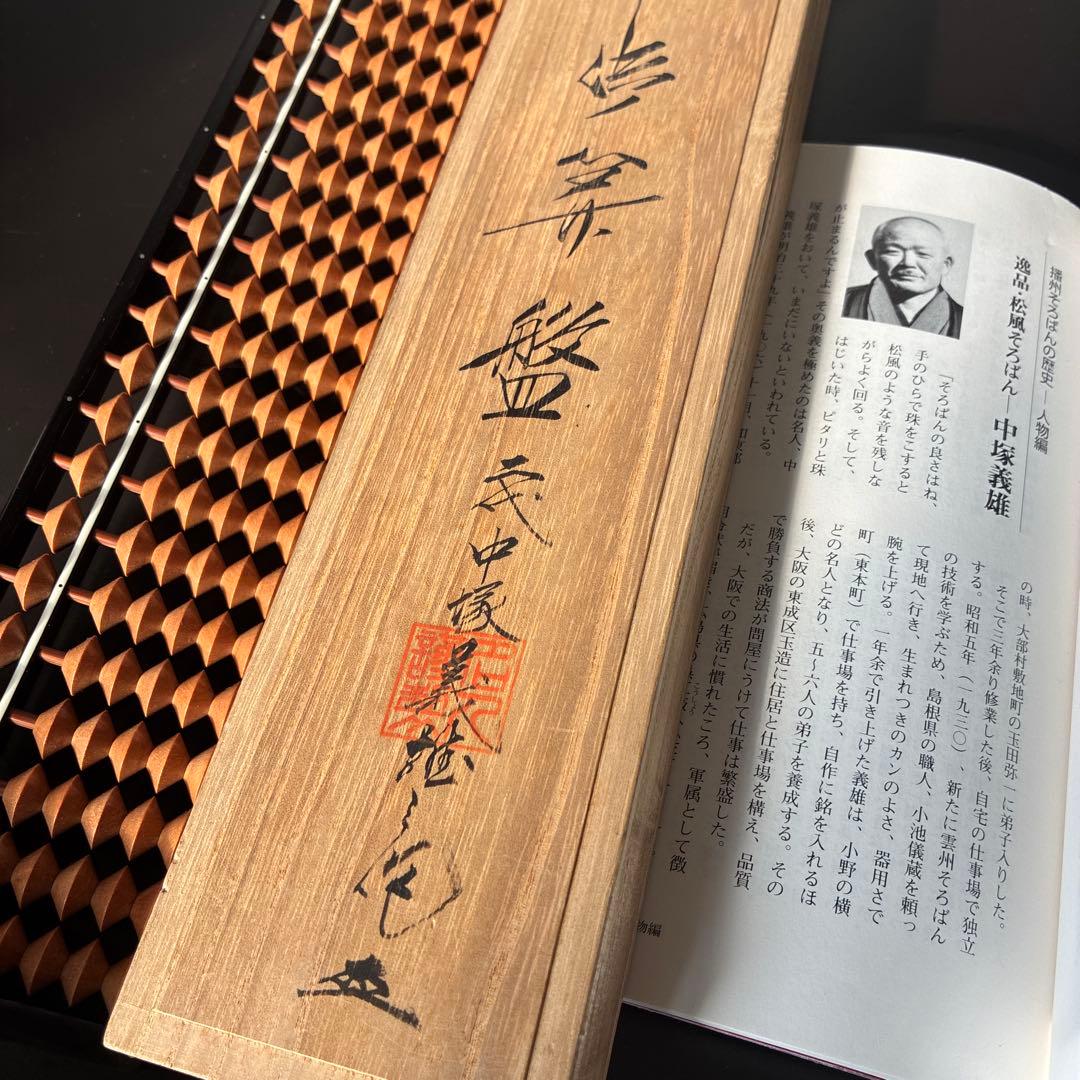 算
盤
中塚義雄
播州そろばんの歴史―人物編
逸品・松風そろばん―中塚義雄
「そろばんの良さはね、
手のひらで珠をこすると
松風のような音を残しな
がらよく回る。そして、
はじいた時、ピタリと珠
が止まるんですよ」その奥義を極めたのは名人、中
塚義雄をおいて、いまだにいないといわれている。
義雄が明治三十九年(一九〇六)十一月、
の時、大部村敷地町の玉田弥一に弟子入りした。
そこで三年余り修業した後、自宅の仕事場で独立
する。昭和五年(一九三〇)、新たに雲州そろばん
の技術を学ぶため、島根県の職人、小池儀蔵を頼っ
て現地へ行き、生まれつきのカンのよさ、器用さで
腕を上げる。一年余で引き上げた義雄は、小野の横
町(東本町)で仕事場を持ち、自作に銘を入れるほ
どの名人となり、五～六人の弟子を養成する。その
後、大阪の東成区玉造に住居と仕事場を構え、品質
で勝負する商法が問屋にうけて仕事は繁盛した。
だが、大阪での生活に慣れたころ、軍属として徴
物編